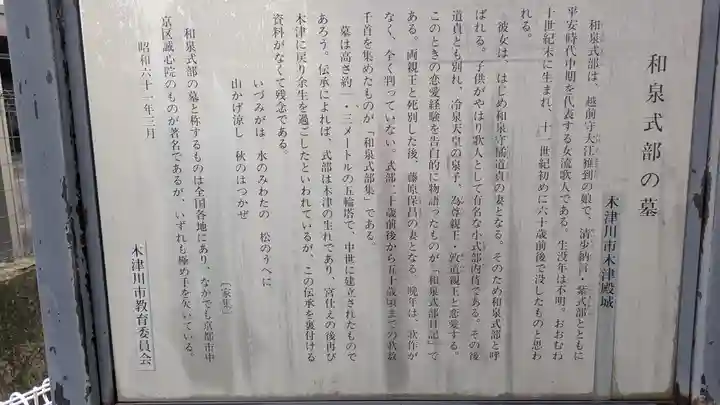 和泉式部の墓
木津川市木津殿城
和泉式部は、越前守大江雅到の娘で、清少納言・紫式部とともに
平安時代中期を代表する女流歌人である。生没年は不明。おおむね
十世紀末に生まれ、十一世紀初めに六十歳前後で没したものと思わ
れる。
彼女は、はじめ和泉守橘道貞の妻となる。そのため和泉式部と呼
ばれる。子供がやはり歌人として有名な小式部内侍である。その後
道貞とも別れ、冷泉天皇の皇子、為尊親王・敦道親王と恋愛する。
このときの恋愛経験を告白的に物語ったものが「和泉式部日記」で
ある。両親王と死別した後、藤原保昌の妻となる。晩年は、歌作が
なく、全く判っていない。式部二十歳前後から五十歳頃までの歌数
千首を集めたものが「和泉式部集」である。
墓は高さ約一・三メートルの五輪塔で、中世に建立されたもので
あろう。伝承によれば、式部は木津の生れであり、宮仕えの後再び
木津に戻り余生を過ごしたといわれているが、この伝承を裏付ける
資料がなくて残念である。
いづみがは 水のみわたの 松のうへに
山かげ涼し 秋のはつかぜ
［家集］
和泉式部の墓と称するものは全国各地にあり、なかでも京都市中
京区誠心院のものが著名であるが、いずれも極め手を欠いている。
昭和六十一年三月
木津川市教育委員会